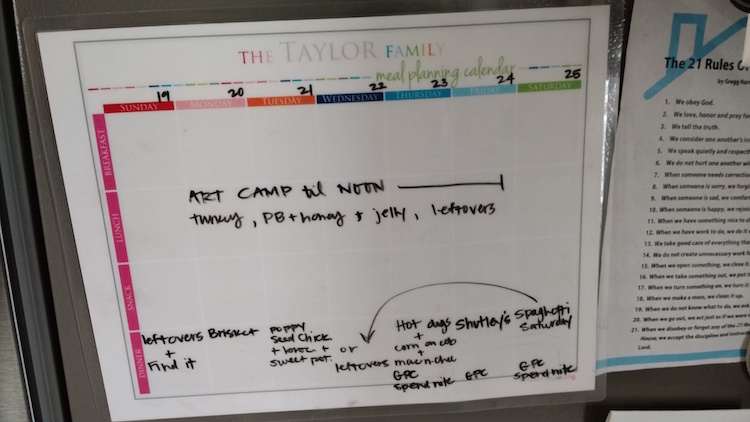 THE TAYLOR FAMILY
meal planning calendar
19 20 21 22 23 24 25
SUNDAY MONDAY TUESDAY WEDNESDAY THURSDAY FRIDAY SATURDAY
BREAKFAST
LUNCH
SNACK
DINNER
ART CAMP til NOON
turkey, PB + honey + jelly, leftovers
leftovers
+
Find it
Brisket
poppy
seed chick
+ broc +
sweet pot.
or
leftovers
Hot dogs
+
corn on cob
+
mac n che
GPC
spend nite
Shutley's
GPC
Spaghetti
Saturday
GPC
spend nite
The 21 Rules O
by Gregg Har
1. We obey God.
2. We love, honor and pray fo
3. We tell the truth.
4. We consider one another's in
5. We speak quietly and respectf
6. We do not hurt one another wi
7. When someone needs correctio
8. When someone is sorry, we forg
9. When someone is sad, we comfort
10. When someone is happy, we rejoi
11. When we have something nice to s
12. When we have work to do, we do it
13. We take good care of everything tha
14. We do not create unnecessary work f
15. When we open something, we close it.
16. When we take something out, we put it
17. When we turn something on, we turn it
18. When we make a mess, we clean it up.
19. When we do not know what to do, we ask.
20. When we go out, we act just as if we were
21. When we disobey or forget any of the 21 R
House, we accept the discipline and instructi
Lord.